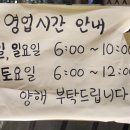 영업시간 안내
일, 일요일 6:00~10:00
토요일 6:00~12:00
양해 부탁드립니다